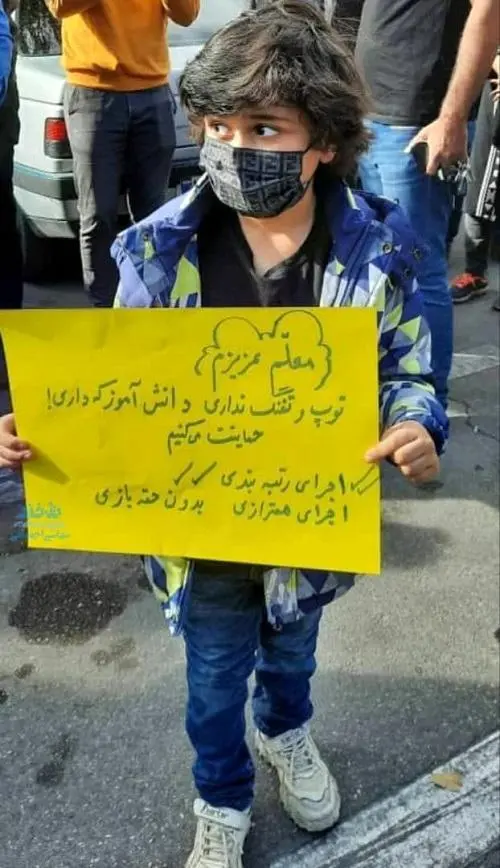 معلّم عزیزم
توپ و تفنگ نداری دانش آموز که داری!
حمایت می‌کنیم
اجرای رتبه بندی
اجرای همترازی بدون حقه بازی